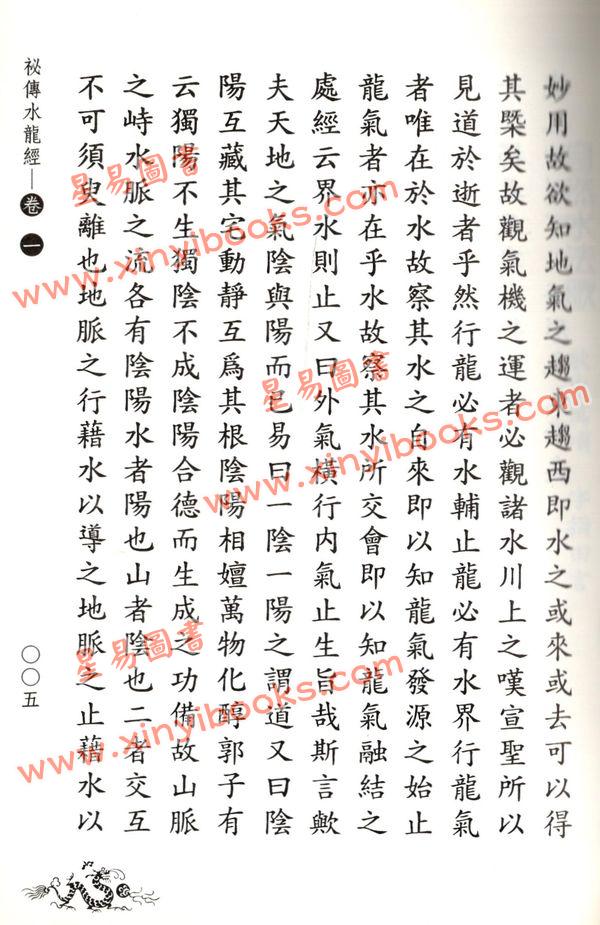 妙用故欲知地氣之趨東趨西即水之或來或去可以得
其槩矣故觀氣機之運者必觀諸水川上之嘆宣聖所以
見道於逝者乎然行龍必有水輔止龍必有水界行龍氣
者唯在於水故察其水之自來即以知龍氣發源之始止
龍氣者亦在乎水故察其水所交會即以知龍氣融結之
處經云界水則止又曰外氣橫行內氣止生旨哉斯言歟
夫天地之氣陰與陽而已易曰一陰一陽之謂道又曰陰
陽互藏其宅動靜互爲其根陰陽相嬗萬物化醇郭子有
云獨陽不生獨陰不成陰陽合德而生成之功備故山脈
之峙水脈之流各有陰陽水者陽也山者陰也二者交互
不可須臾離也地脈之行藉水以導之地脈之止藉水以
祕傳水龍經—卷一
〇〇五
星易圖書
www.xinyibooks.com
星易圖書
www.xinyibooks.com
星易圖書
www.xinyibooks.com